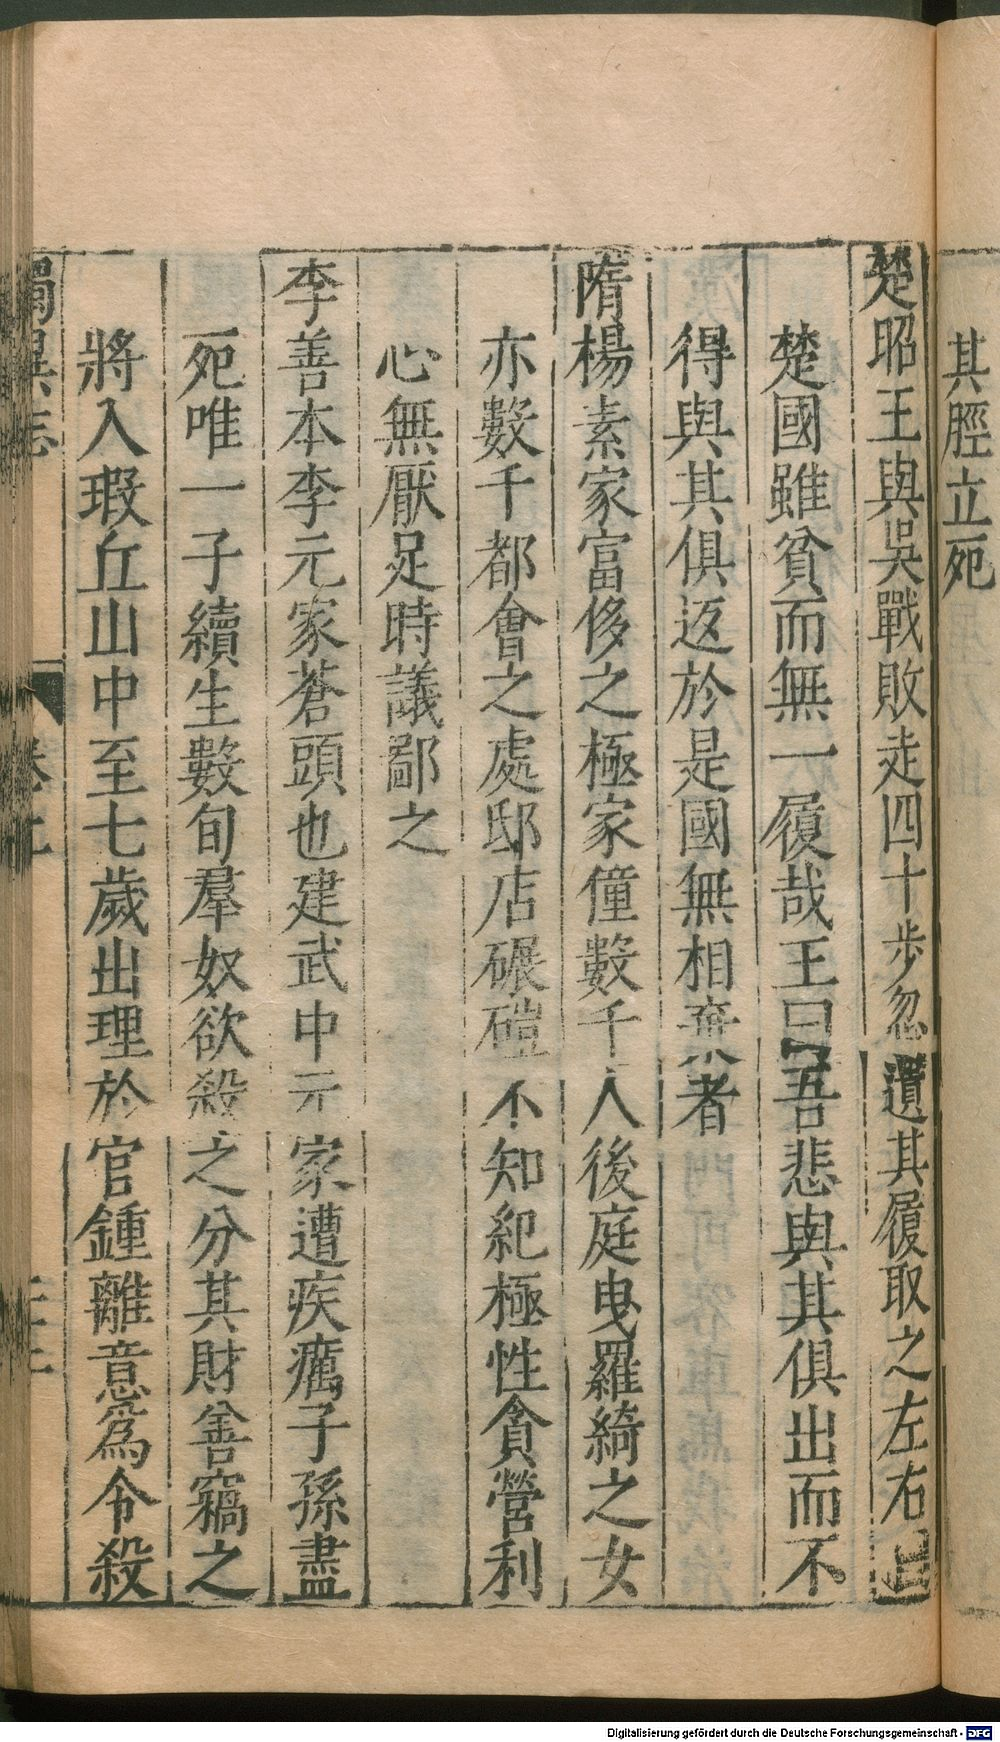 其脛立死
楚昭王與吳戰敗走四十步忽遺其履取之左右曰
楚國雖貧而無一履哉王曰吾悲與其俱出而不
得與其俱返於是國無相棄者
隋楊素家富侈之極家僮數千人後庭曳羅綺之女
亦數千都會之處邸店碾磑不知紀極性貪營利
心無厭足時議鄙之
李善本李元家蒼頭也建武中元家遭疾癘子孫盡
死唯一子續生數旬羣奴欲殺之分其財善竊之
將入瑕丘山中至七歲出理於官鍾離意爲令殺
獨異志
Digitalisierung gefördert durch die Deutsche Forschungsgemeinschaft - DFG